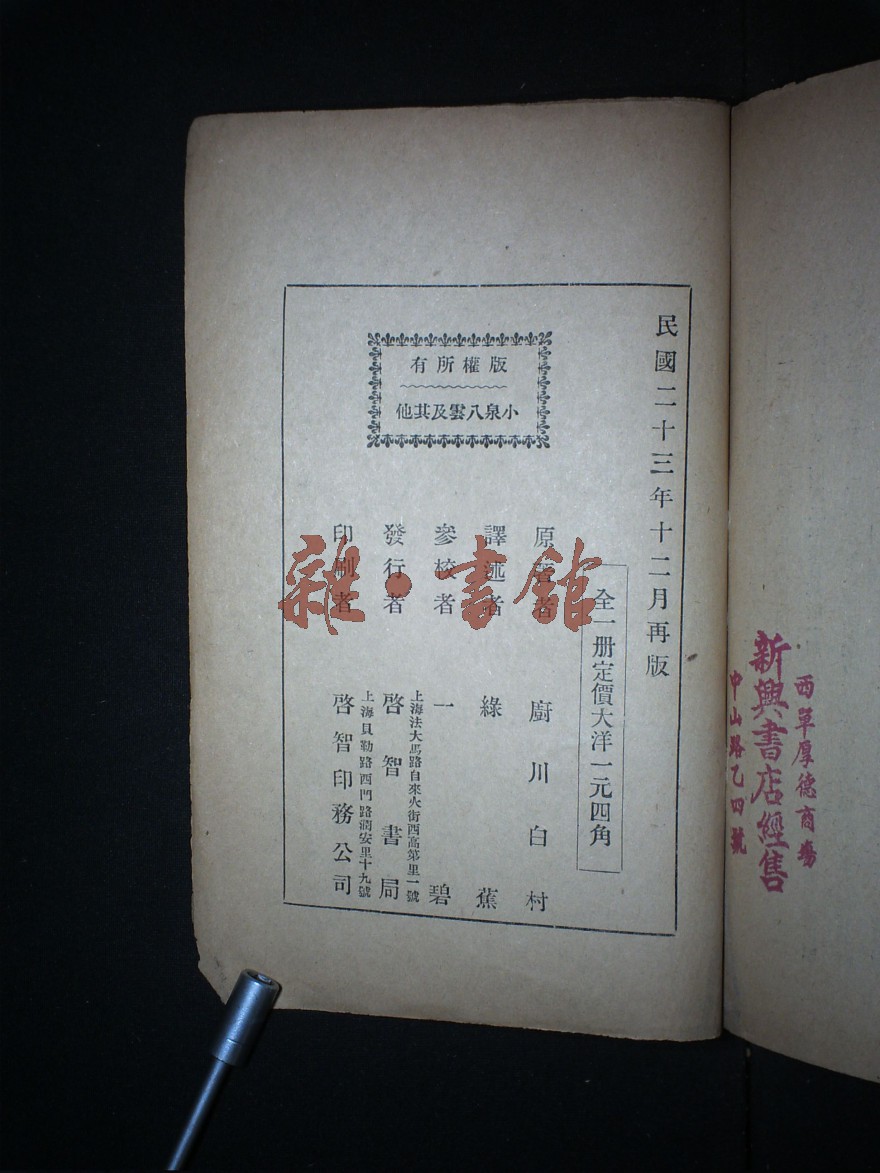 民國二十三年十二月再版
版權所有
小泉八雲及其他
全一册定價大洋一元四角
原著者 廚川白村
譯述者 綠蕉
參校者 一碧
發行者 啓智書局
上海法大馬路自來火街西高第里一號
印刷者 啓智印務公司
上海貝勒路西門路潤安里十九號
雜·書館
西單厚德商場
新興書店經售
中山路乙四號